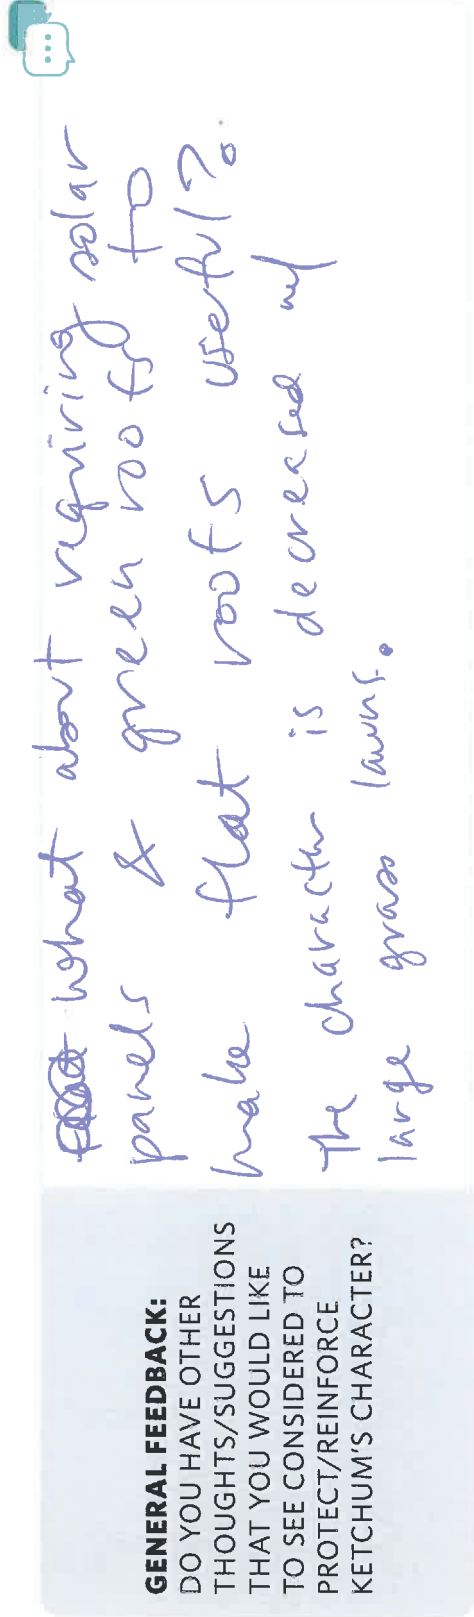 GENERAL FEEDBACK:
DO YOU HAVE OTHER
THOUGHTS/SUGGESTIONS
THAT YOU WOULD LIKE
TO SEE CONSIDERED TO
PROTECT/REINFORCE
KETCHUM'S CHARACTER?
what about requiring solar
panels & green roofs to
make flat roofs useful?
The character is decreased w/
large grass lawns.